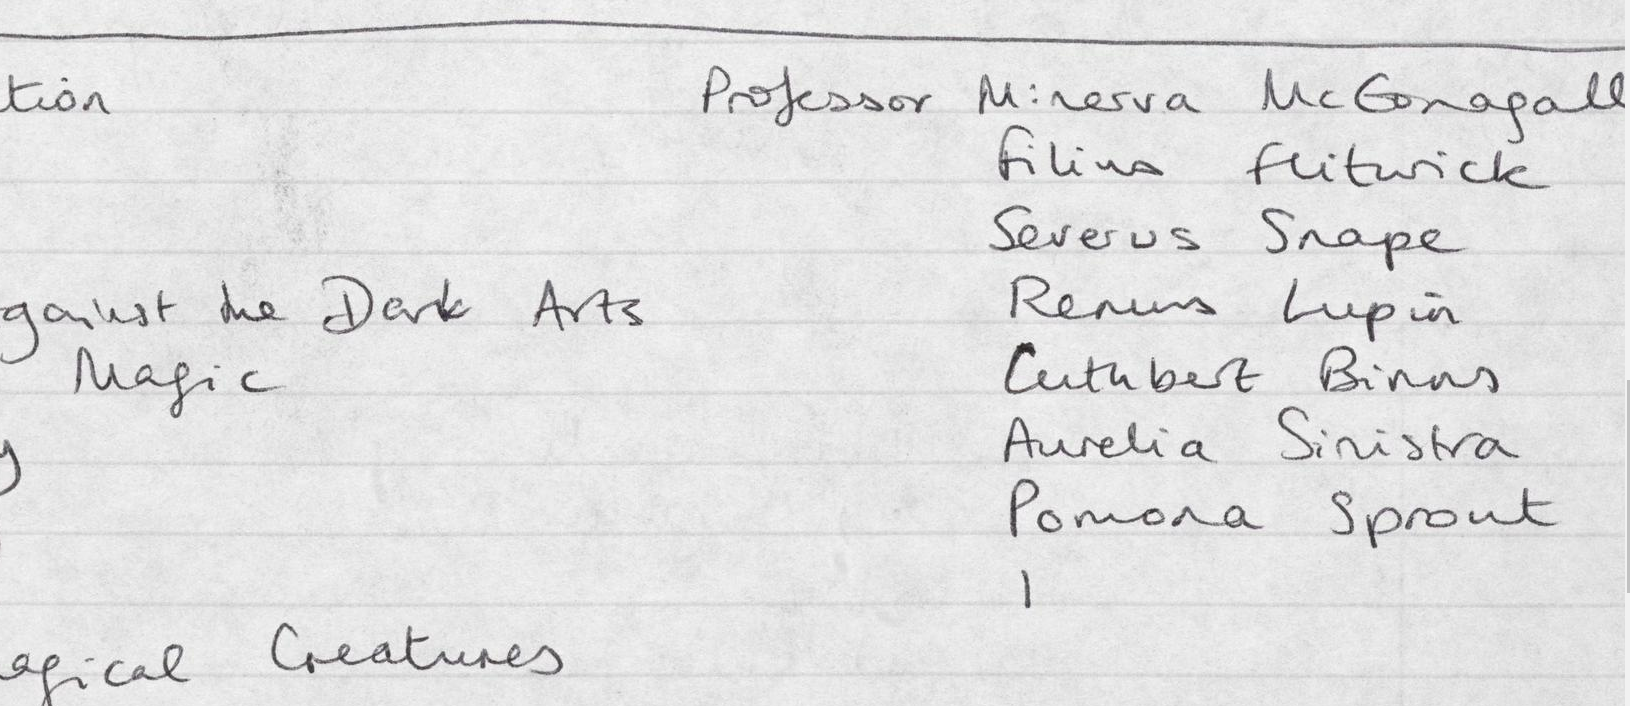 tion Professor Minerva McGonagall
Filius Flitwick
Severus Snape
against the Dark Arts Remus Lupin
Magic Cuthbert Binns
y Aurelia Sinistra
Pomona Sprout
agical Creatures